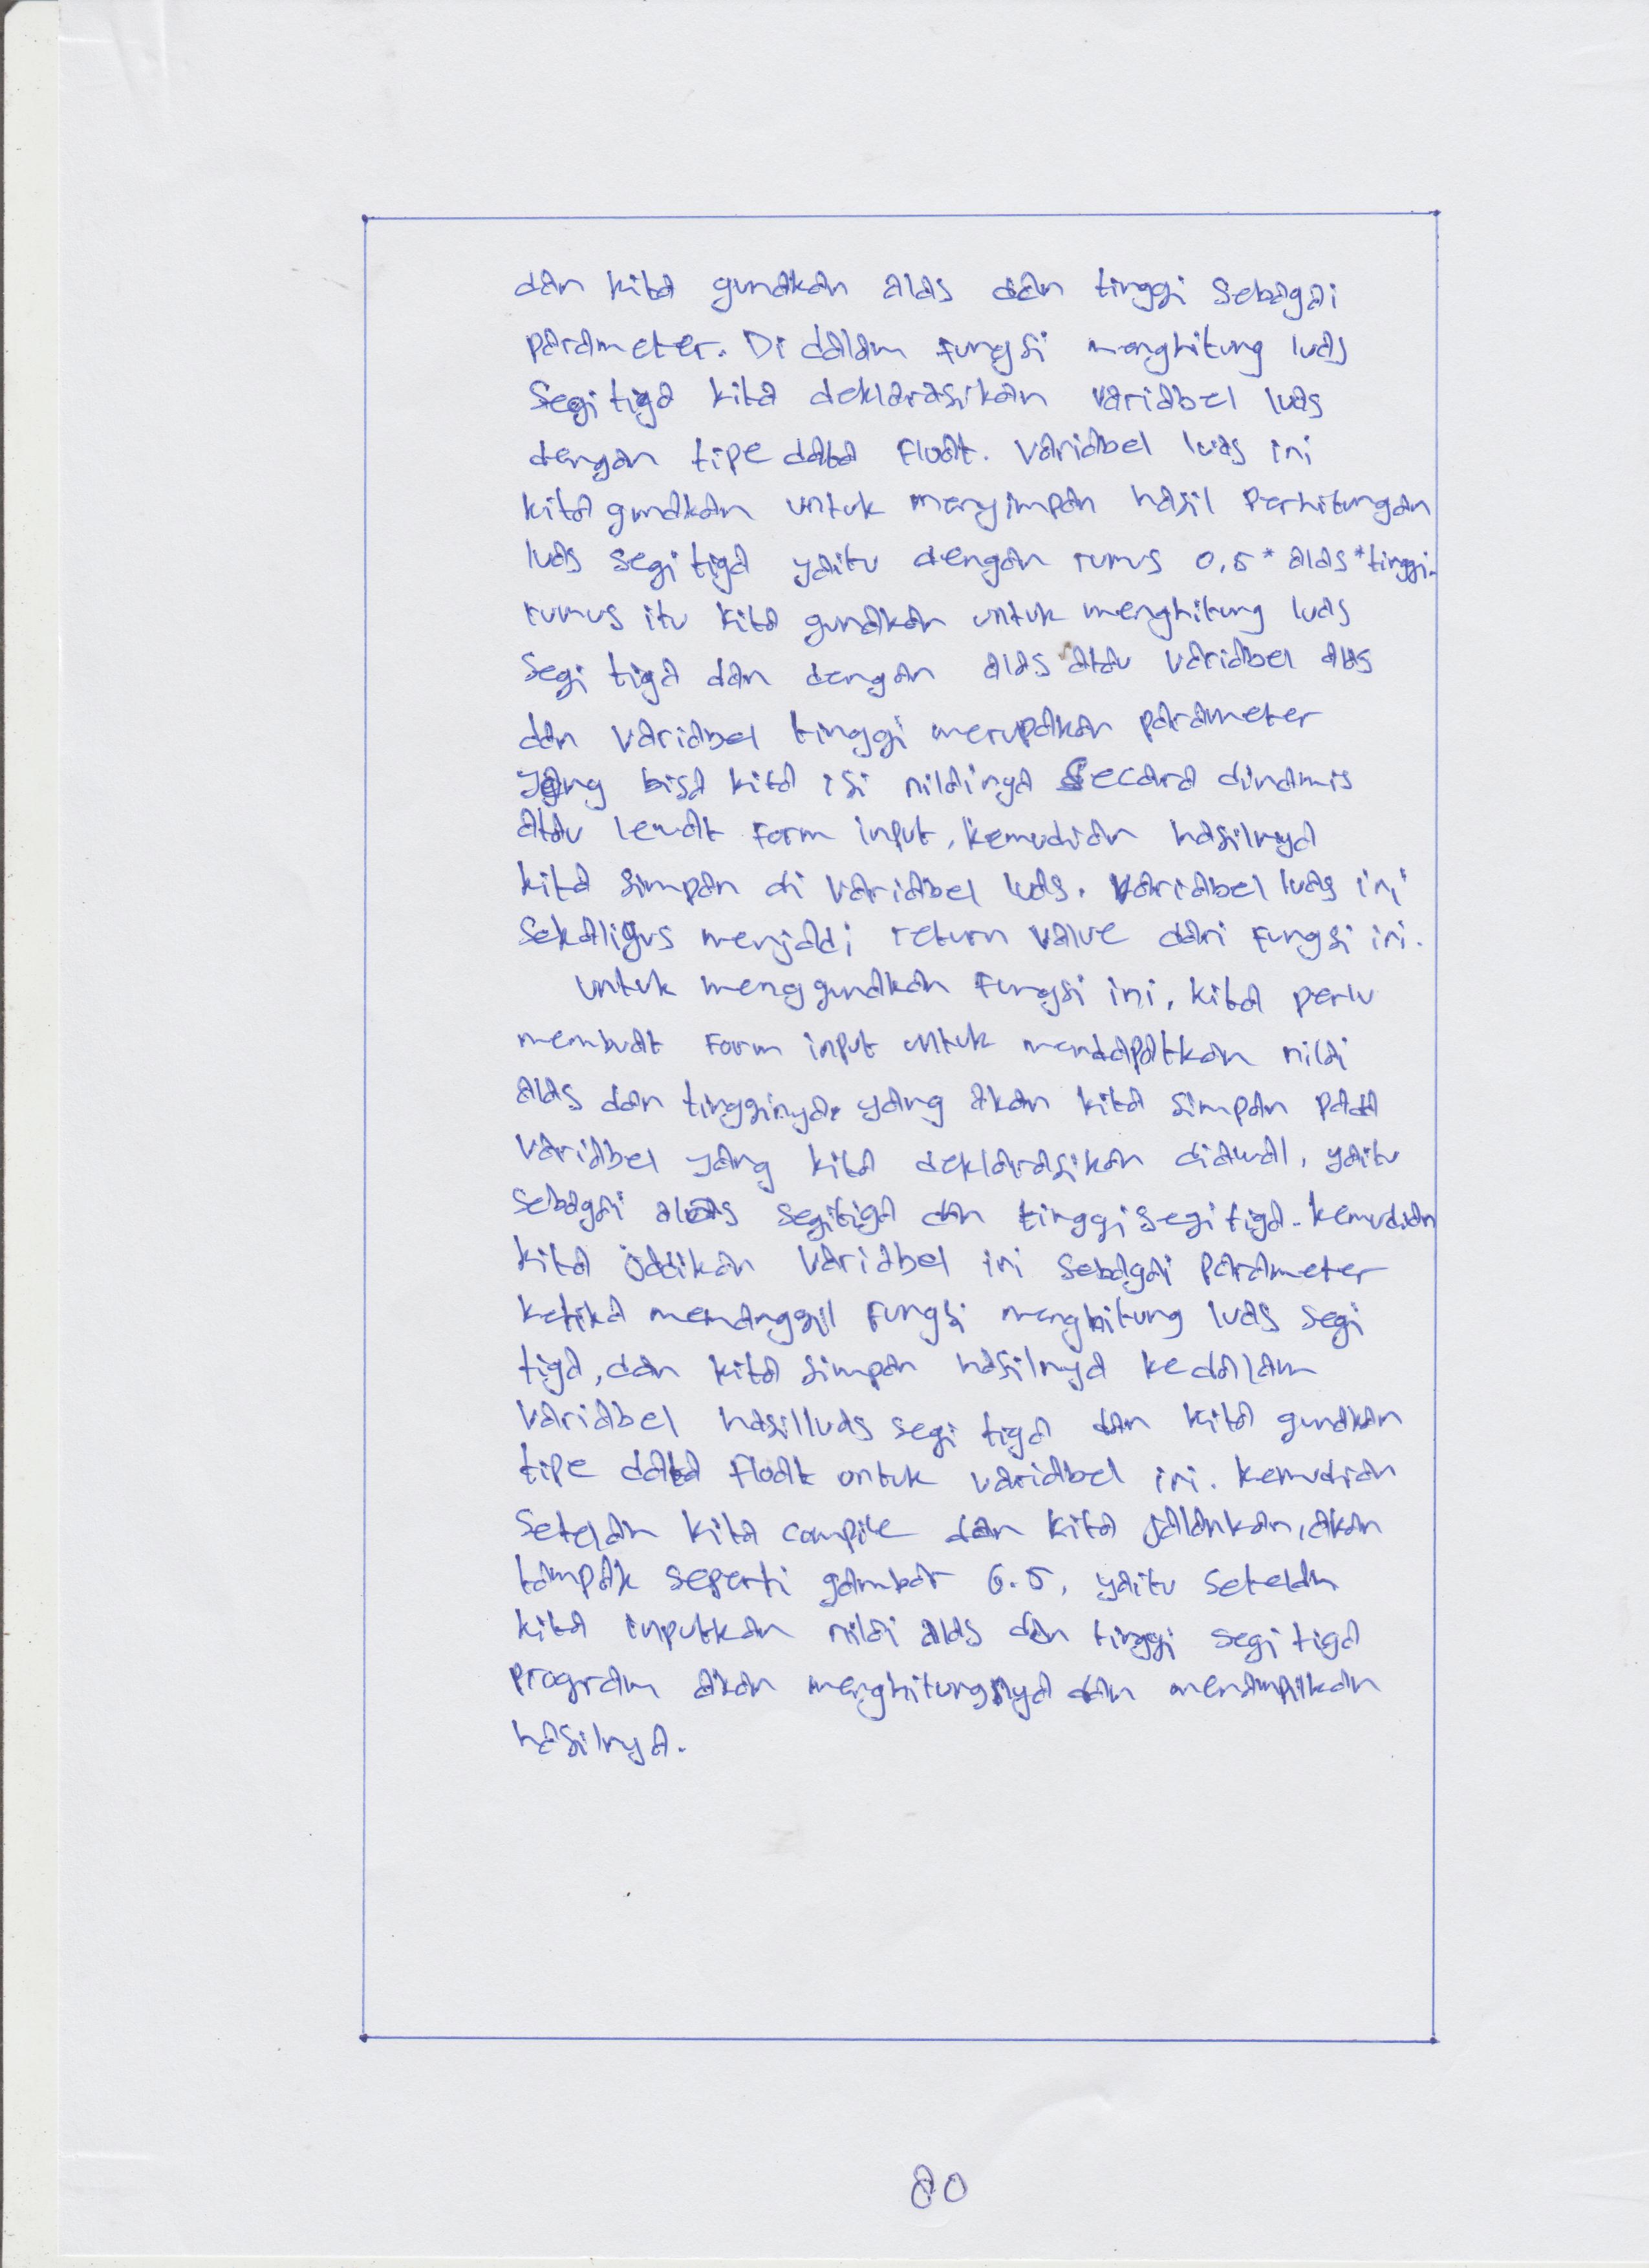 dan kita gunakan alas dan tinggi sebagai
parameter. Di dalam fungsi menghitung luas
segi tiga kita deklarasikan variabel luas
dengan tipe data float. Variabel luas ini
kita gunakan untuk menyimpan hasil perhitungan
luas segi tiga yaitu dengan rumus 0,5 * alas * tinggi.
rumus itu kita gunakan untuk menghitung luas
segi tiga dan dengan alas atau variabel alas
dan variabel tinggi merupakan parameter
yang bisa kita isi nilainya secara dinamis
atau lewat form input, kemudian hasilnya
kita simpan di variabel luas. Variabel luas ini
sekaligus menjadi return value dari fungsi ini.
untuk menggunakan fungsi ini, kita perlu
membuat form input untuk mendapatkan nilai
alas dan tingginya yang akan kita simpan pada
variabel yang kita deklarasikan diawal, yaitu
sebagai alas segitiga dan tinggi segi tiga. kemudian
kita jadikan variabel ini sebagai parameter
ketika memanggil fungsi menghitung luas segi
tiga, dan kita simpan hasilnya kedalam
variabel hasilluas segi tiga dan kita gunakan
tipe data float untuk variabel ini. kemudian
setelah kita compile dan kita jalankan, akan
tampak seperti gambar 6.5, yaitu setelah
kita inputkan nilai alas dan tinggi segi tiga
program akan menghitungnya dan menampilkan
hasilnya.
80